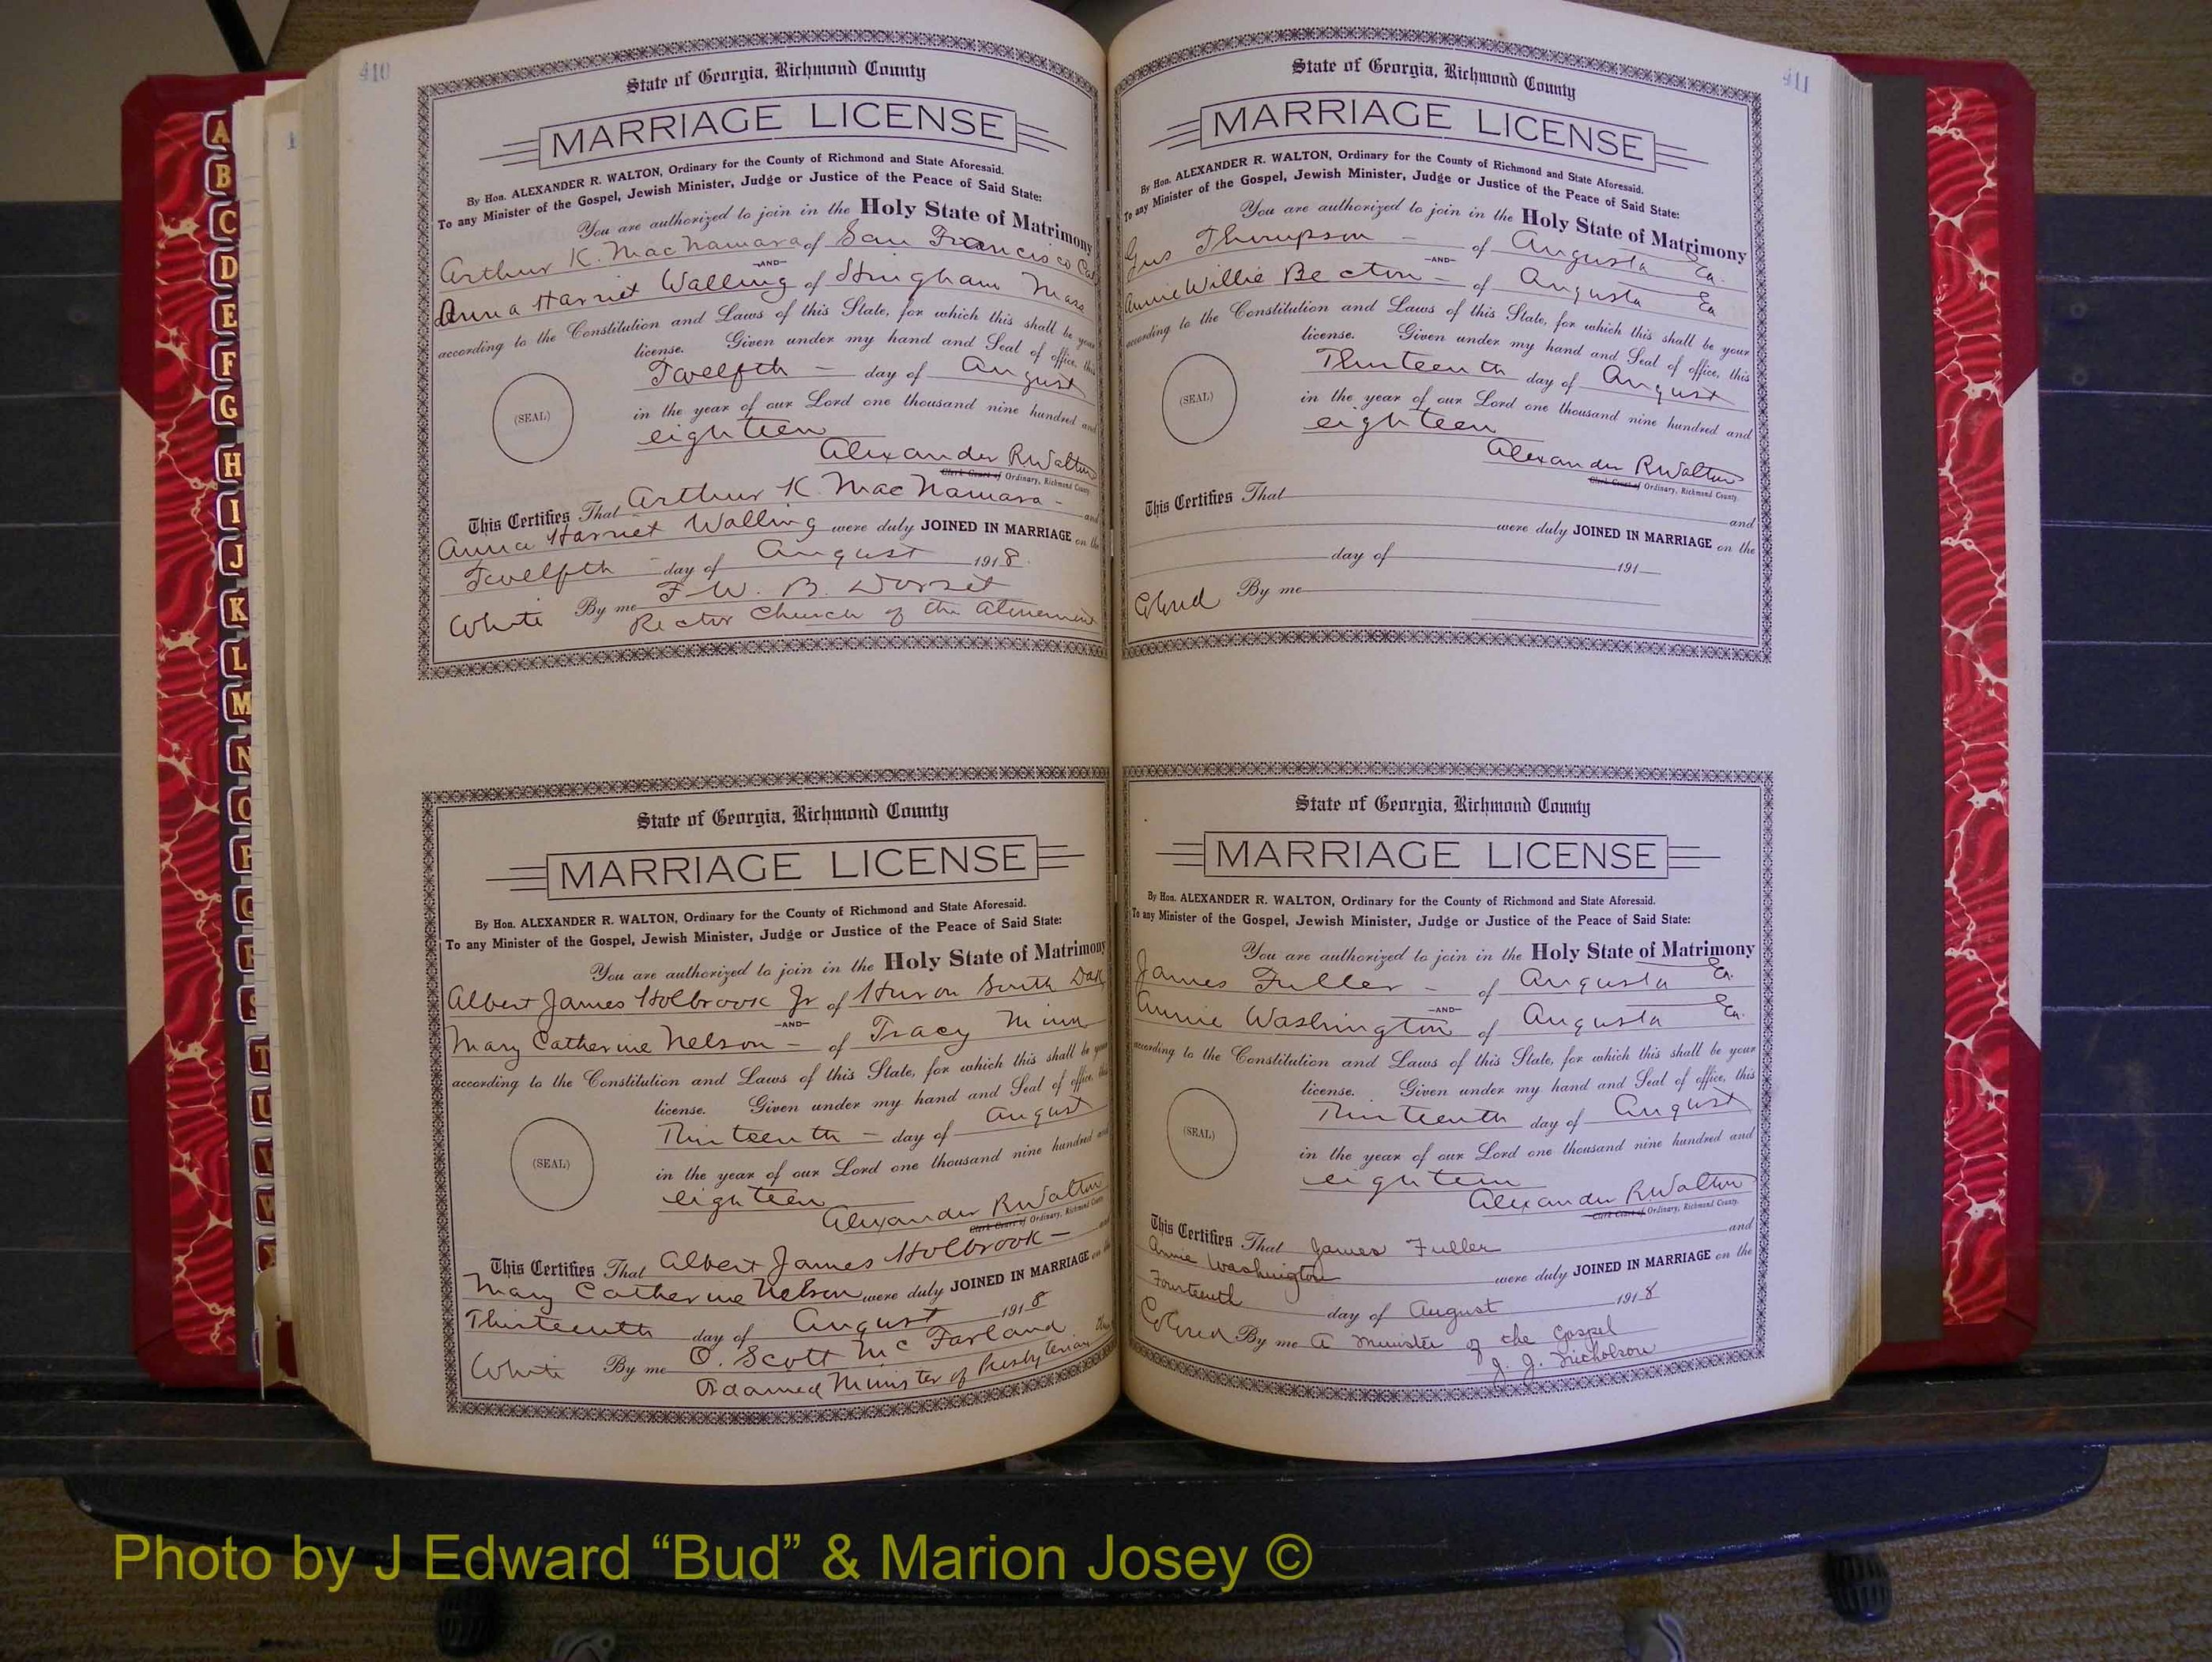 410
State of Georgia, Richmond County
MARRIAGE LICENSE
By Hon. ALEXANDER R. WALTON, Ordinary for the County of Richmond and State Aforesaid.
To any Minister of the Gospel, Jewish Minister, Judge or Justice of the Peace of Said State:
You are authorized to join in the Holy State of Matrimony
Arthur K. MacNamara of San Francisco Cal
—AND—
Anna Harriet Walling of Hingham Mass
according to the Constitution and Laws of this State, for which this shall be your
license. Given under my hand and Seal of office, this
Twelfth — day of August
(SEAL)
in the year of our Lord one thousand nine hundred and
eighteen
Alexander R Walton
Clerk Court of Ordinary, Richmond County
This Certifies That Arthur K. MacNamara - and
Anna Harriet Walling were duly JOINED IN MARRIAGE on the
Twelfth - day of August 1918.
White By me F. W. B. Dorset
Rector Church of the Atonement
State of Georgia, Richmond County
MARRIAGE LICENSE
By Hon. ALEXANDER R. WALTON, Ordinary for the County of Richmond and State Aforesaid.
To any Minister of the Gospel, Jewish Minister, Judge or Justice of the Peace of Said State:
You are authorized to join in the Holy State of Matrimony
Albert James Holbrook Jr of Huron South Dak
—AND—
Mary Catherine Nelson - of Tracy Minn
according to the Constitution and Laws of this State, for which this shall be your
license. Given under my hand and Seal of office, this
Thirteenth — day of August
(SEAL)
in the year of our Lord one thousand nine hundred and
eighteen
Alexander R Walton
Clerk Court of Ordinary, Richmond County
This Certifies That Albert James Holbrook - and
Mary Catherine Nelson were duly JOINED IN MARRIAGE on the
Thirteenth day of August 1918
White By me O. Scott McFarland
Ordained Minister of Presbyterian
411
State of Georgia, Richmond County
MARRIAGE LICENSE
By Hon. ALEXANDER R. WALTON, Ordinary for the County of Richmond and State Aforesaid.
To any Minister of the Gospel, Jewish Minister, Judge or Justice of the Peace of Said State:
You are authorized to join in the Holy State of Matrimony
Gus Thompson - of Augusta Ga.
—AND—
Annie Willie Becton - of Augusta Ga
according to the Constitution and Laws of this State, for which this shall be your
license. Given under my hand and Seal of office, this
Thirteenth day of August
(SEAL)
in the year of our Lord one thousand nine hundred and
eighteen
Alexander R Walton
Clerk Court of Ordinary, Richmond County.
This Certifies That and
were duly JOINED IN MARRIAGE on the
day of 191
Colored By me
State of Georgia, Richmond County
MARRIAGE LICENSE
By Hon. ALEXANDER R. WALTON, Ordinary for the County of Richmond and State Aforesaid.
To any Minister of the Gospel, Jewish Minister, Judge or Justice of the Peace of Said State:
You are authorized to join in the Holy State of Matrimony
James Fuller - of Augusta Ga.
—AND—
Annie Washington of Augusta Ga.
according to the Constitution and Laws of this State, for which this shall be your
license. Given under my hand and Seal of office, this
Thirteenth day of August
(SEAL)
in the year of our Lord one thousand nine hundred and
eighteen
Alexander R Walton
Clerk Court of Ordinary, Richmond County.
This Certifies That James Fuller and
Annie Washington were duly JOINED IN MARRIAGE on the
Fourteenth day of August 1918
Colored By me A Minister of the Gospel
J. J. Nicholson
A
B
C
D
E
F
G
H
I
J
K
L
M
N
O
P
Q
R
S
T
U
V
W
Photo by J Edward “Bud” & Marion Josey ©